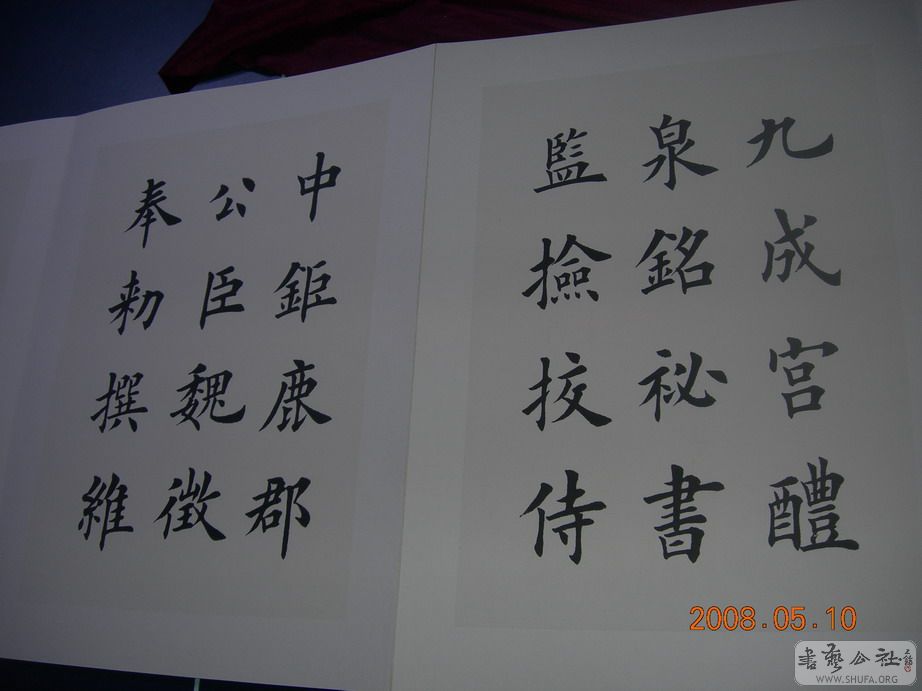 九成宮醴
泉銘祕書
監撿挍侍
中鉅鹿郡
公臣魏徵
奉勑撰維
2008.05.10
書藝公社
WWW.SHUFA.ORG